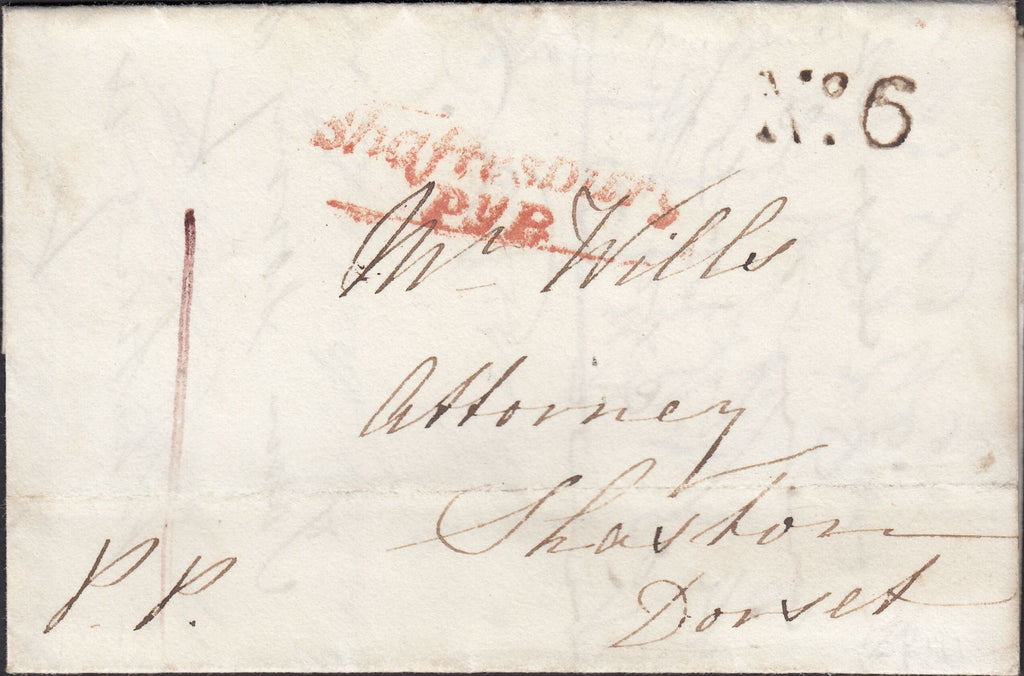 No. 6
Shaftesbury
Py P.
Mr. Wills
Attorney
Shaston
Dorset
P. P.